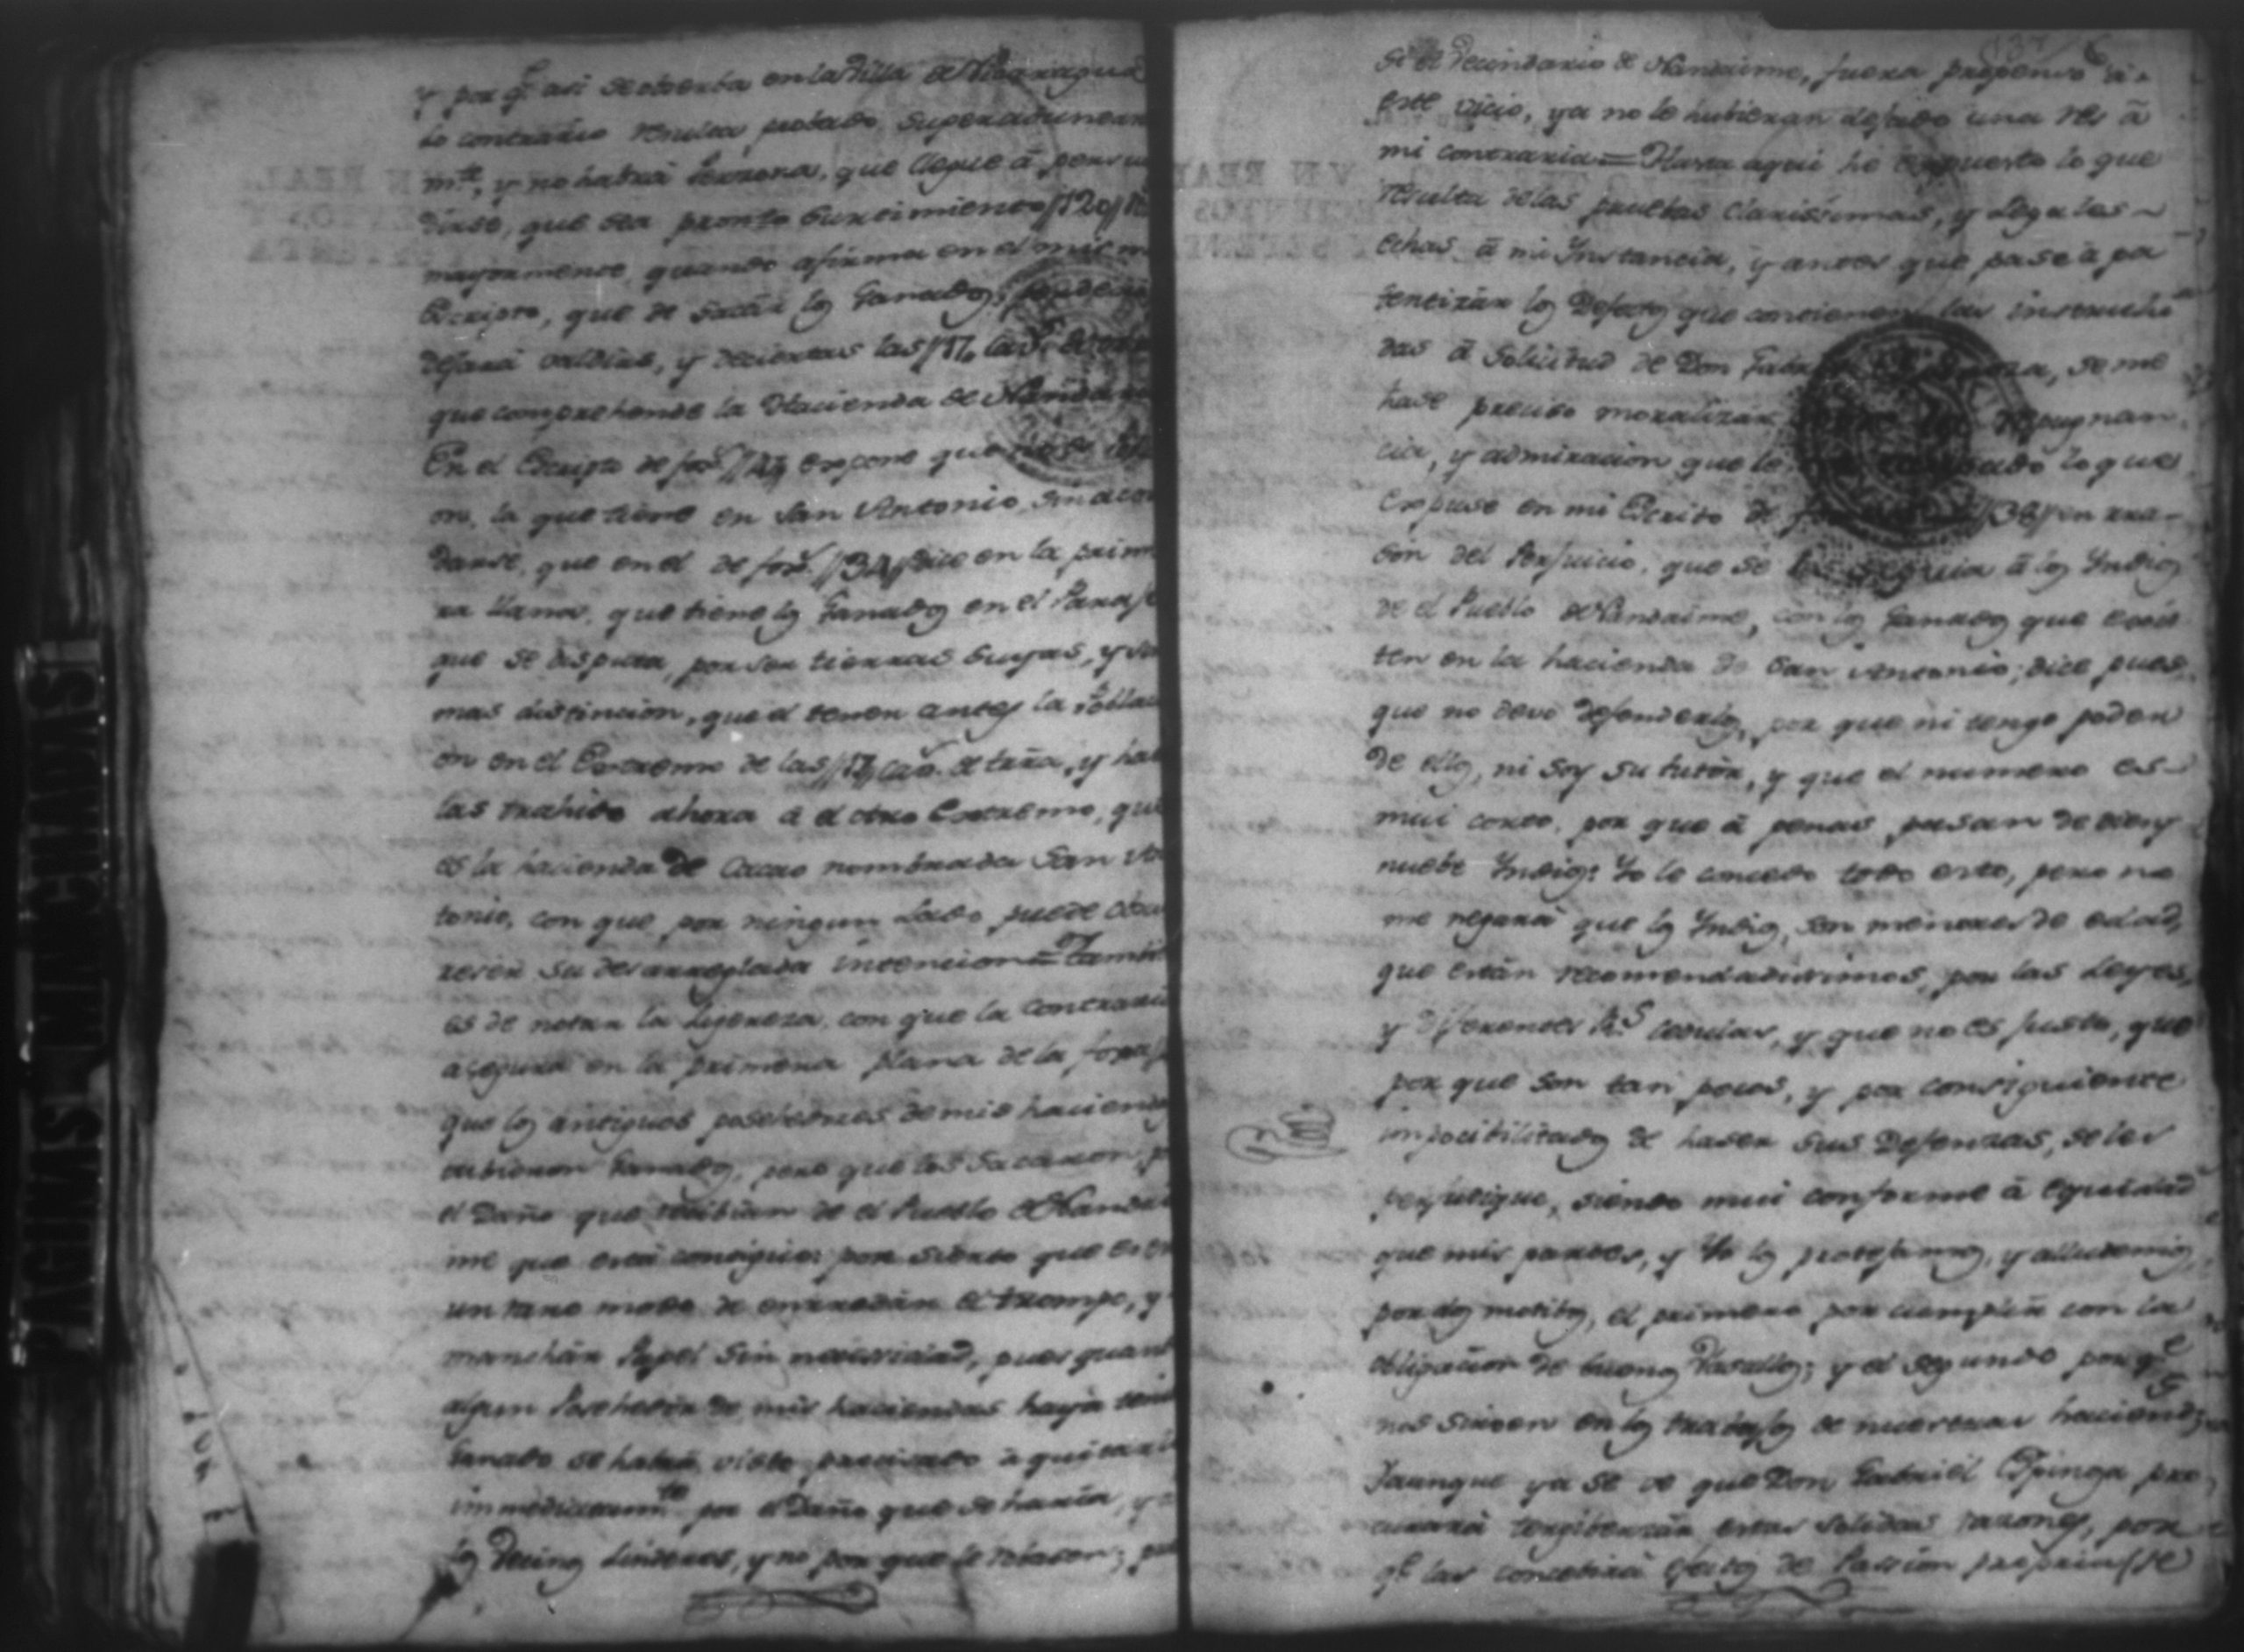 Y por q.e asi se obserba en la Villa de Nicaragua
lo contrario resulta probado superabundan
m.te, y no habrá Persona, que llegue á persua
dirse, que sea pronto surtimiento //120//
mayormente, quando afirma en el mismo
Escripto, que de sacar los Ganados,
dejará valdias, y deciertas las //17// cav.s de tierra
que comprehende la Hacienda de Nandai
En el Escripto de fox.s expone que
on, la que tiene en San Antonio, sin acor
darse, que en el de fox.s //34// dice en la prim
ra llana, que tiene los Ganados en el Paraje
que se disputa, por ser tierras suyas, y sin
mas distincion, que el tener antes la Poblaci
on en el Extremo de las //17// cav.s de tierra, y ha
las trahido ahora á el otro Extremo, que
es la hacienda de Cacao nombrada San An
tonio, con que por ningun Lado puede
su desarreglada intencion = Tambi
es de notar la Ligereza, con que la contraria
asegura en la primera plana de la foxa
que los antiguos posehedores de mis haciend
tubieron Ganados, pero que los sacaron, p
el Daño que recibian de el Pueblo de Nandai
me que está contiguo: por sierto que es
un raro modo de enrredar el trompo, y
manchar Papel sin necessidad, pues quan
algun Posehedor de mis haciendas haya teni
Ganado se habrá visto precisado á quitarl
immediatam.te por el Daño que se harian, y
los Vecinos Linderos, y no por que le robasen; pu
137
Si el Vecindario de Nandaime, fuera propenso á
este vicio, ya no le hubieran dejado una res á
mi contraria = Hasta aqui he expuesto lo que
resulta de las pruebas clarissimas, y Legales
echas á mi Instancia, y antes que pase á pa
tentizar los Defectos que contienen las instruhi
das á Solicitud de Don Gabriel Espinoza, se me
hase preciso moralizar repugnan
cia, y admiracion que le lo que
expuse en mi Escrito de //38// en rra
són del Perjuicio, que se les seguia á los Indios
de el Pueblo de Nandaime, con los Ganados que exis
ten en la hacienda de San Antonio; dice pues
que no devo defenderlos, por que ni tengo poder
de ellos, ni soy su tutór, y que el numero es
mui corto, por que á penas pasan de diesy
nuebe Indios: Yo le concedo todo esto, pero no
me negará que los Indios, son menores de edad,
que están recomendadissimos, por las Leyes,
y diferentes R.s cedulas, y que no es justo, que
por que son tan pocos, y por consiguiente
impocibilitados de haser sus Defensas, se les
perjudique, siendo mui conforme á equidad
que mis partes, y Yo los protejamos, y alludemos
por dos motibos, el primero por cumplir con la
obligacion de buenos Vasallos; y el segundo por q.e
nos sirven en los trabajos de nuestras haciend.s
Yaunque ya se ve que Don Gabriel Espinoza pro
curará tergiberzar estas solidas razones, por
q.e las concebirá efectos de Passion